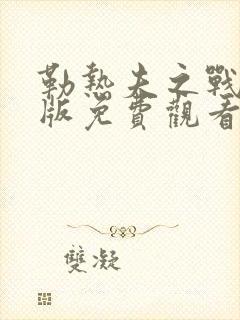 勒熱夫之戰
版免費觀看
雙凝